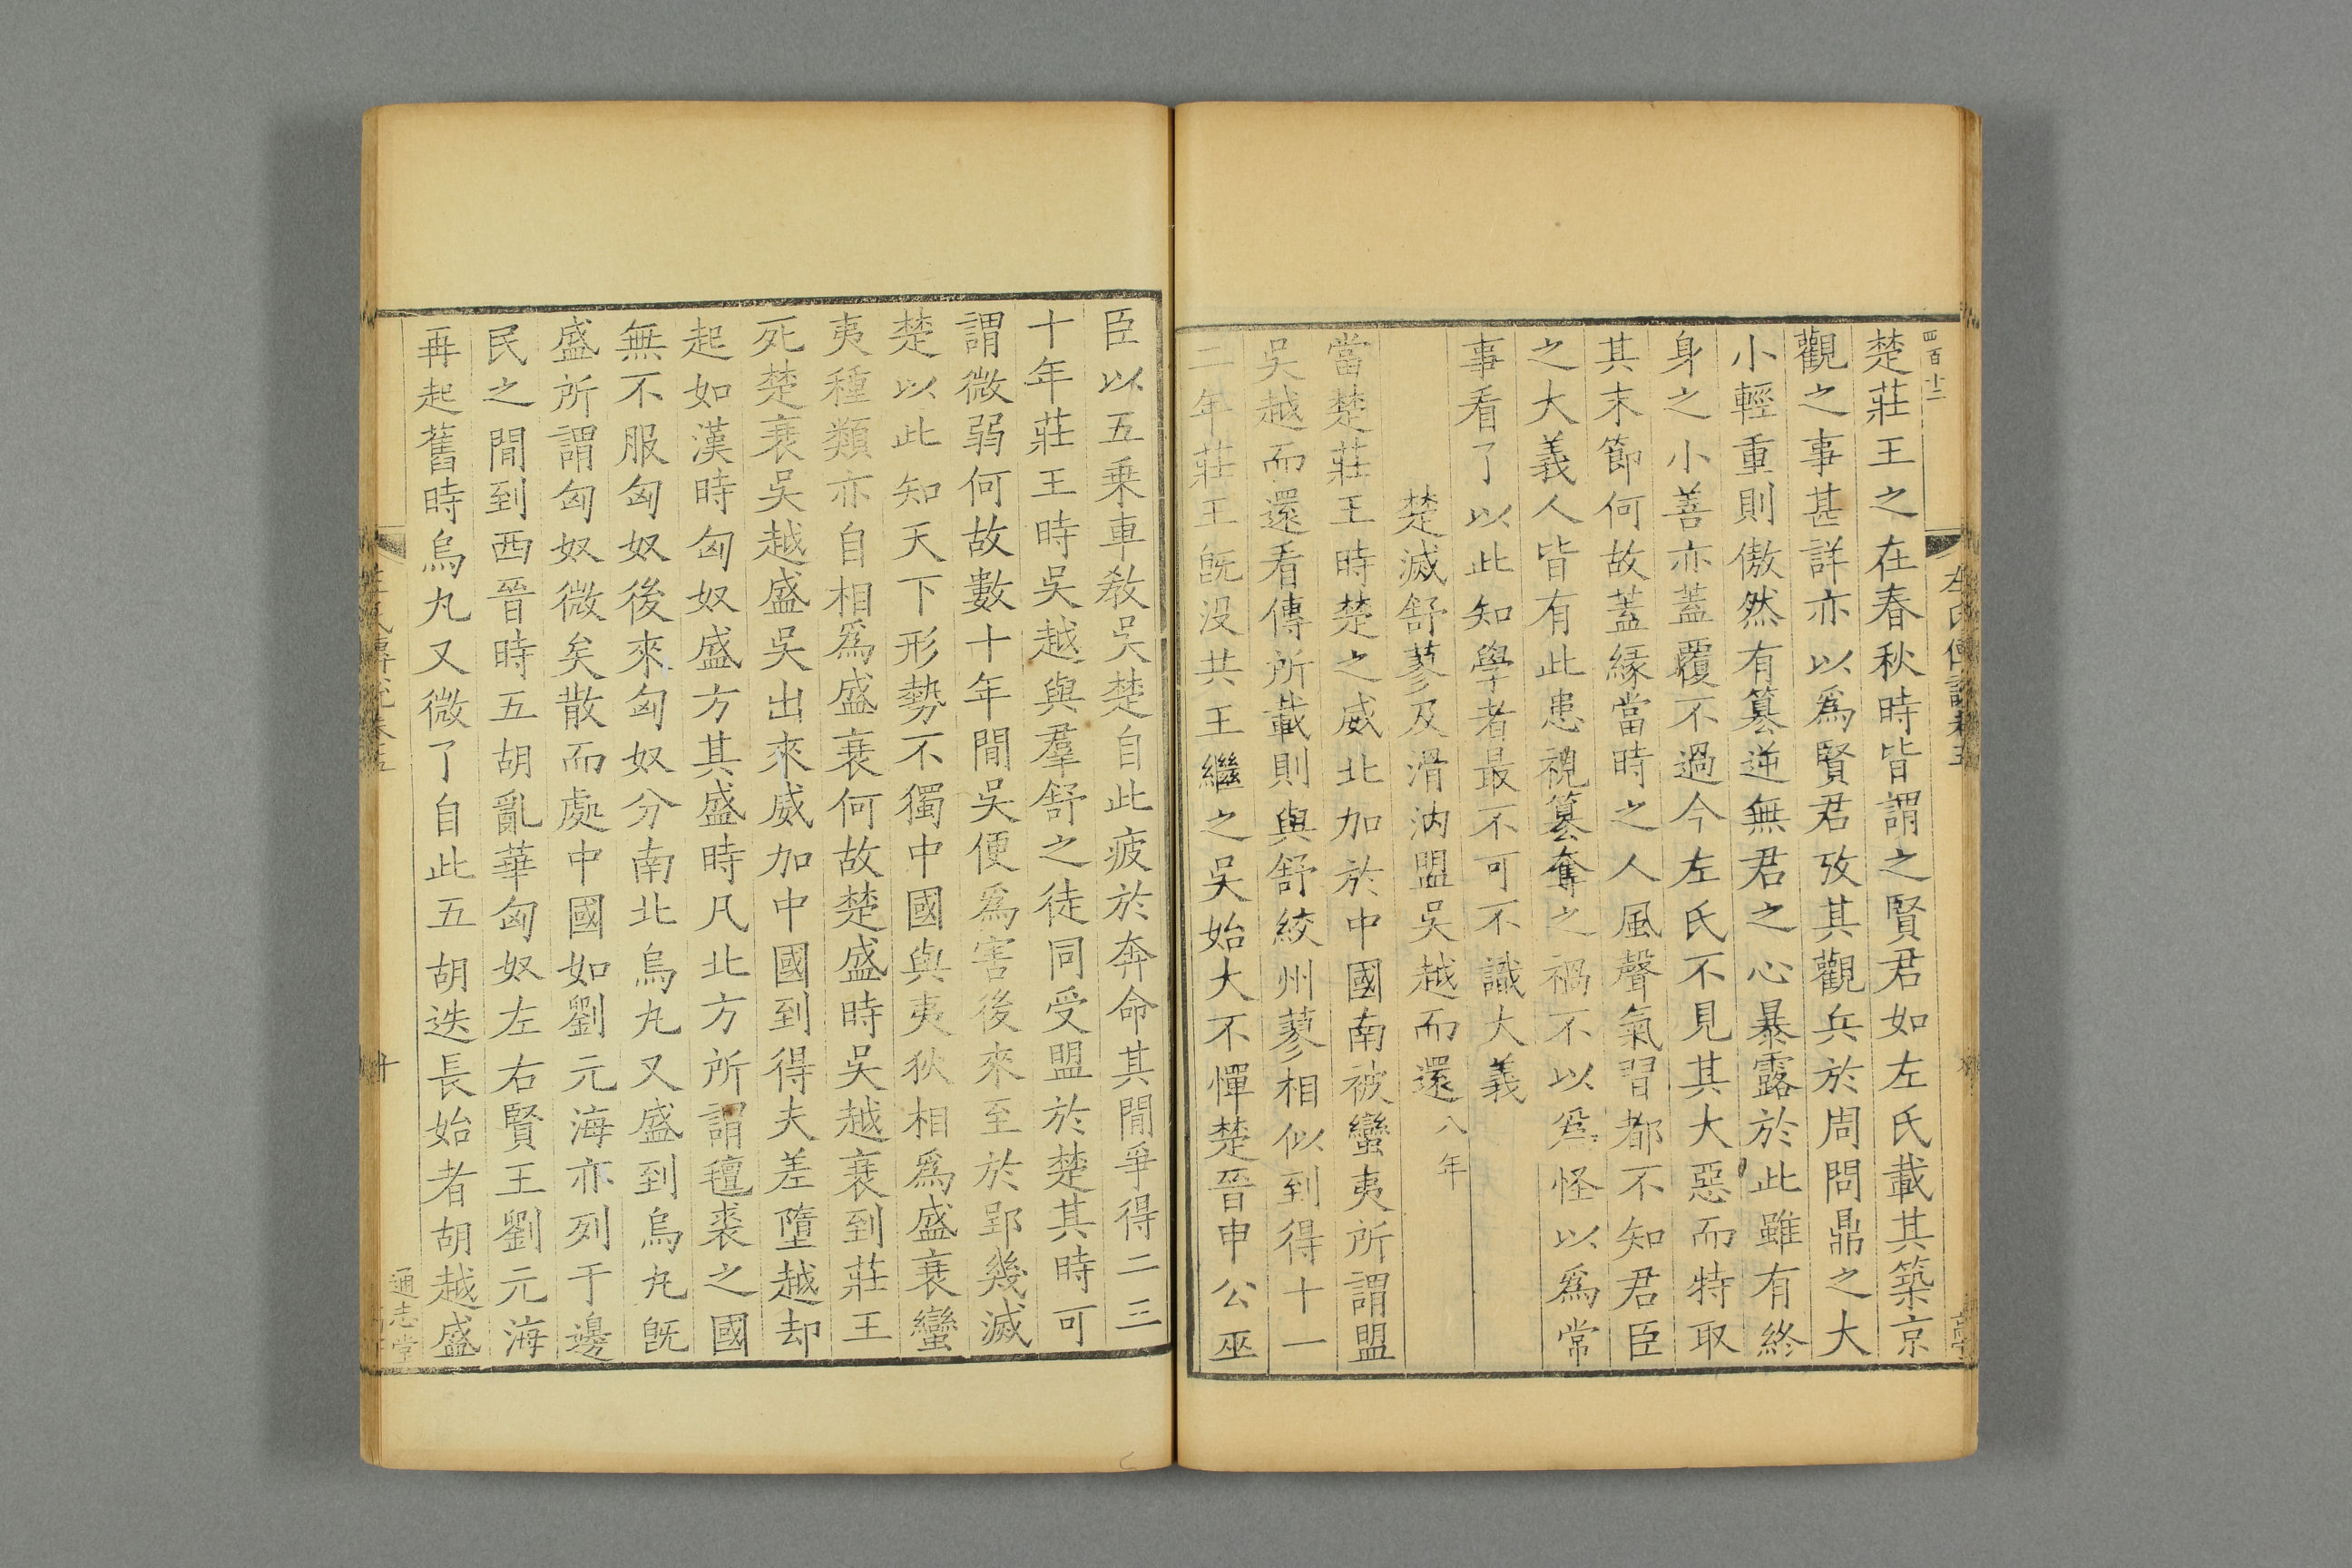 四百十二
楚莊王之在春秋時皆謂之賢君如左氏載其築京
觀之事甚詳亦以爲賢君攷其觀兵於周問鼎之大
小輕重則傲然有篡逆無君之心暴露於此雖有終
身之小善亦蓋覆不過今左氏不見其大惡而特取
其末節何故蓋緣當時之人風聲氣習都不知君臣
之大義人皆有此患視篡奪之禍不以爲怪以爲常
事看了以此知學者最不可不識大義
楚滅舒蓼及滑汭盟吳越而還八年
當楚莊王時楚之威北加於中國南被蠻夷所謂盟
吳越而還看傳所載則與舒絞州蓼相似到得十一
二年莊王既没共王繼之吳始大不憚楚晉申公巫
臣以五乘車敎吳楚自此疲於奔命其間爭得二三
十年莊王時吳越與羣舒之徒同受盟於楚其時可
謂微弱何故數十年間吳便爲害後來至於郢幾滅
楚以此知天下形勢不獨中國與夷狄相爲盛衰蠻
夷種類亦自相爲盛衰何故楚盛時吳越衰到莊王
死楚衰吳越盛吳出來威加中國到得夫差墮越却
起如漢時匈奴盛方其盛時凡北方所謂氊裘之國
無不服匈奴後來匈奴分南北烏丸又盛到烏丸既
盛所謂匈奴微矣散而處中國如劉元海亦列于邊
民之間到西晉時五胡亂華匈奴左右賢王劉元海
再起舊時烏丸又微了自此五胡迭長始者胡越盛
左氏傳說卷五
十
通志堂